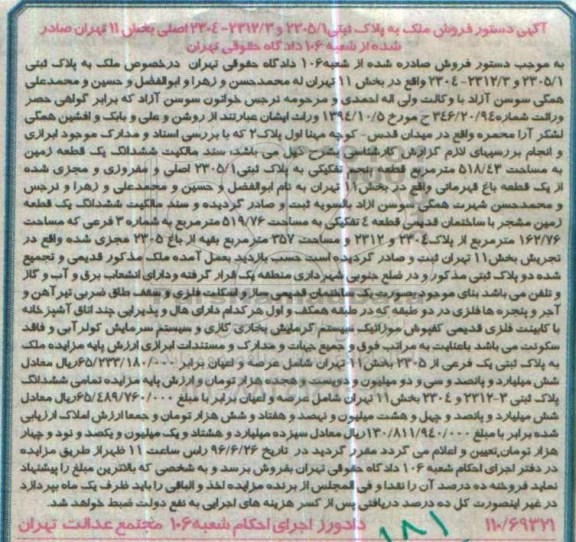 آگهی دستور فروش ملک به پلاک ثبتی ۲۳۰۵/۱ و ۲۳۱۲/۳-۲۳۰۴ اصلی بخش ۱۱ تهران صادر
شده از شعبه ۱۰۶ دادگاه حقوقی تهران
به موجب دستور فروش صادره شده از شعبه ۱۰۶ دادگاه حقوقی تهران درخصوص ملک به پلاک ثبتی
۲۳۰۵/۱ و ۲۳۱۲/۳-۲۳۰۴ واقع در بخش ۱۱ تهران له محمدحسن و زهرا و ابوالفضل و حسین و محمدعلی
همگی سوسن آزاد با وکالت ولی اله احمدی و مرحومه نرجس خواتون سوسن آزاد که برابر گواهی حصر
وراثت شماره ۳۴۶/۲۰/۹۴ ح مورخ ۱۳۹۴/۱۰/۵ وراث ایشان عبارتند از روشن و علی و بابک و افشین همگی
لشگر آرا محمره واقع در میدان قدس- کوچه مهنا اول پلاک ۲ که با بررسی اسناد و مدارک موجود ابرازی
و انجام بررسیهای لازم گزارش کارشناسی بشرح ذیل می باشد: سند مالکیت ششدانگ یک قطعه زمین
به مساحت ۵۱۸/۴۳ مترمربع قطعه پنجم تفکیکی به پلاک ثبتی ۲۳۰۵/۱ اصلی و مفروزی و مجزی شده
از یک قطعه باغ قهرمانی واقع در بخش ۱۱ تهران به نام ابوالفضل و حسین و محمدعلی و زهرا و نرجس
و محمدحسن شهرت همگی سوسن آزاد بالسویه ثبت و صادر گردیده و سند مالکیت ششدانگ یک قطعه
زمین مشجر با ساختمان قدیمی قطعه ۴ تفکیکی به مساحت ۵۱۹/۷۶ مترمربع به شماره ۳ فرعی که مساحت
۱۶۲/۷۶ مترمربع از پلاک ۲۳۰۴ و ۲۳۱۲ و مساحت ۳۵۷ مترمربع بقیه از باغ ۲۳۰۵ مجزی شده واقع در
تجریش بخش ۱۱ تهران ثبت و صادر گردیده است حسب بازدید بعمل آمده ملک مذکور قدیمی و تجمیع
شده دو پلاک ثبتی مذکور و در ضلع جنوبی شهرداری منطقه یک قرار گرفته و دارای انشعاب برق و آب و گاز
و تلفن می باشد بنای موجود بصورت یک ساختمان قدیمی ساز و اسکلت فلزی و سقف طاق ضربی تیرآهن و
آجر و پنجره ها فلزی در دو طبقه که در طبقه همکف و اول هرکدام دارای هال و پذیرایی چند اتاق آشپزخانه
با کابینت فلزی قدیمی کفپوش موزائیک سیستم گرمایش بخاری گازی و سیستم سرمایش کولر آبی و فاقد
سکونت می باشد باعنایت به مراتب فوق و جمیع جهات و مدارک و مستندات ابرازی ارزش پایه مزایده ملک
به پلاک ثبتی یک فرعی از ۲۳۰۵ بخش ۱۱ تهران شامل عرصه و اعیان برابر ۶۵/۲۳۳/۱۸۰/۰۰۰ ریال معادل
شش میلیارد و پانصد و سی و دو میلیون و دویست و هجده هزار تومان و ارزش پایه مزایده تمامی ششدانگ
پلاک ثبتی ۳-۲۳۱۲ و ۲۳۰۴ بخش ۱۱ تهران شامل عرصه و اعیان برابر با مبلغ ۶۵/۴۸۹/۷۶۰/۰۰۰ ریال معادل
شش میلیارد و پانصد و چهل و هشت میلیون و نهصد و هفتاد و شش هزار تومان و جمعا ارزش املاک ارزیابی
شده برابر با مبلغ ۱۳۰/۸۱۱/۹۴۰/۰۰۰ ریال معادل سیزده میلیارد و هشتاد و یک میلیون و یکصد و نود و چهار
هزار تومان تعیین و اعلام می گردد مقرر گردید در تاریخ ۹۶/۶/۲۶ راس ساعت ۱۱ ظهر از طریق مزایده
در دفتر اجرای احکام شعبه ۱۰۶ دادگاه حقوقی تهران بفروش برسد و به شخصی که بالاترین مبلغ را پیشنهاد
نماید فروخته ده درصد آن را نقدا و فی المجلس از برنده مزایده اخذ و الباقی را باید ظرف یک ماه بپردازد
در غیر اینصورت کل ده درصد دریافتی پس از کسر هزینه های اجرایی به نفع دولت ضبط خواهد شد.
۱۱۰/۶۹۳۲۱ دادورز اجرای احکام شعبه ۱۰۶ مجتمع عدالت تهران
۱۸۱